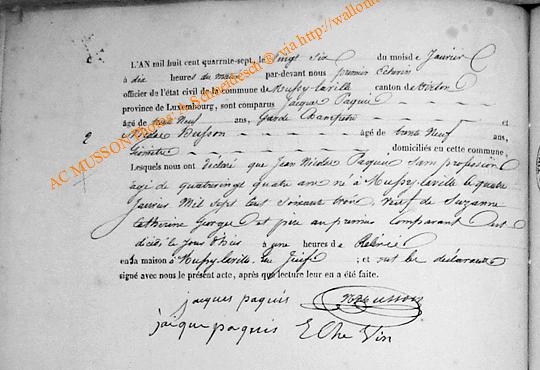 2
L'AN mil huit cent quarante-sept, le vingt six du mois de Janvier
à dix heures du matin par-devant nous premier Echevin
officier de l'état civil de la commune de Mussy-la-ville canton de Virton
province de Luxembourg, sont comparus Jacques Paquis
âgé de neuf ans, Garde Champêtre et
Nicolas Husson âgé de trente Neuf ans,
domiciliés en cette commune
Lesquels nous ont déclaré que Jean Nicolas Paquis Sans profession
âgé de quatrevingt quatre ans né à Mussy-la-ville le quatre
Janvier Mil Sept Cent Soixante trois veuf de Suzanne
Catherine George et père au premier comparant est
décédé le jour d'hier à une heures de
en sa maison à Mussy-la-ville et ont les déclarants
signé avec nous le présent acte, après que lecture leur en a été faite.
jaques paquis Husson
jaique paquis
AC MUSSON Photos © via http://wallonia